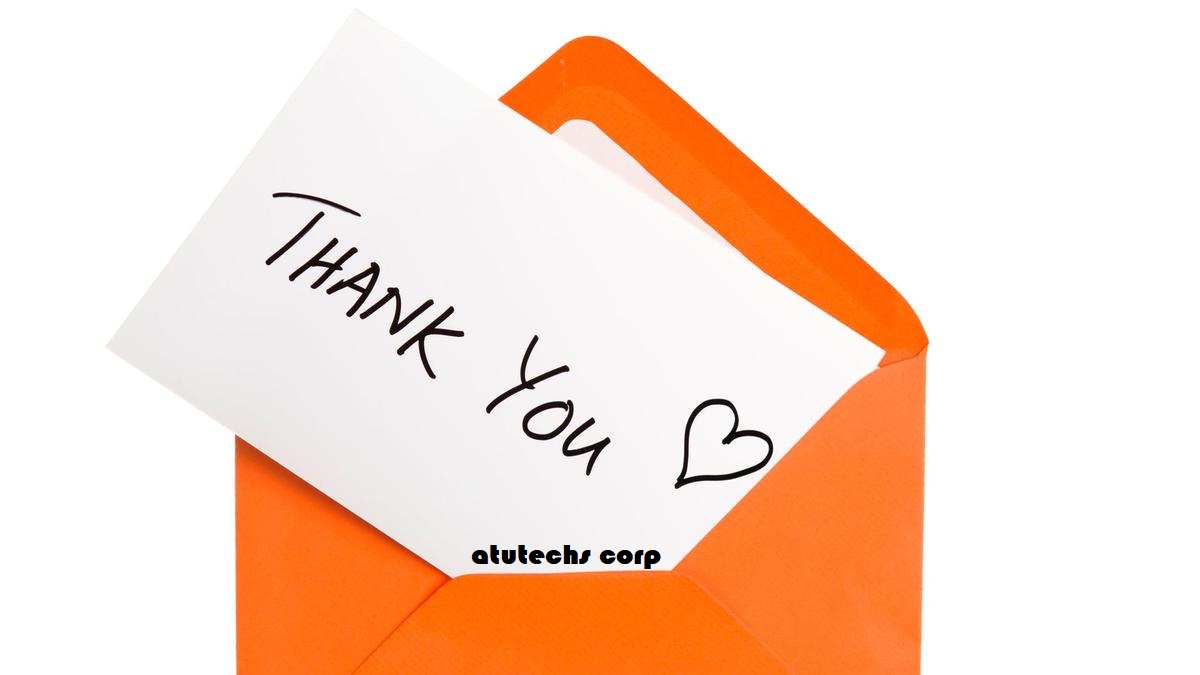 THANK YOU
atutechs corp